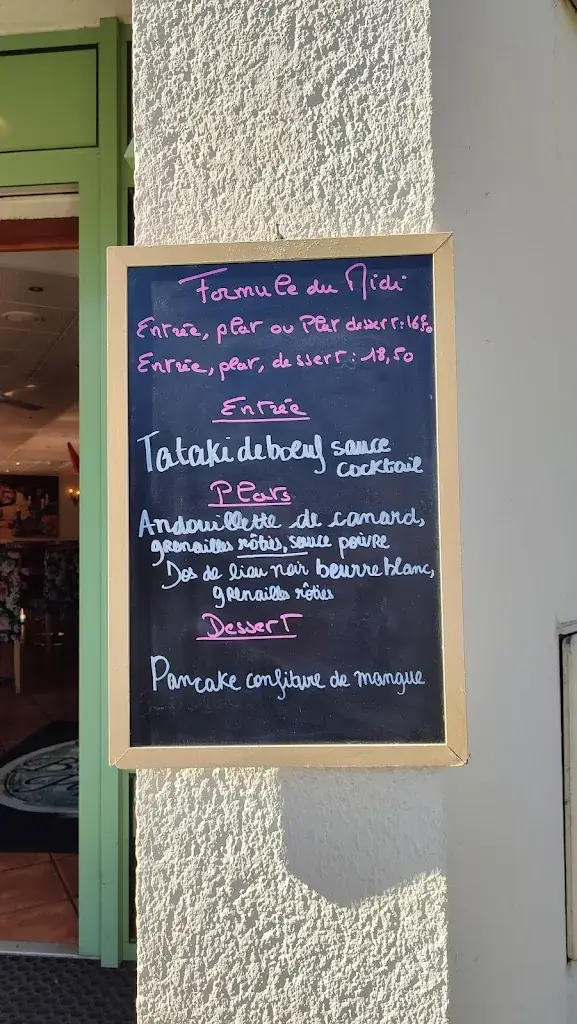 Formule du Midi
Entrée, plat ou Plat dessert : 16,50
Entrée, plat, dessert : 18,50
Entrée
Tataki de boeuf sauce
cocktail
Plats
Andouillette de canard,
grenailles rôties, sauce poivre
Dos de lieu noir beurre blanc,
grenailles rôties
Dessert
Pancake confiture de mangue